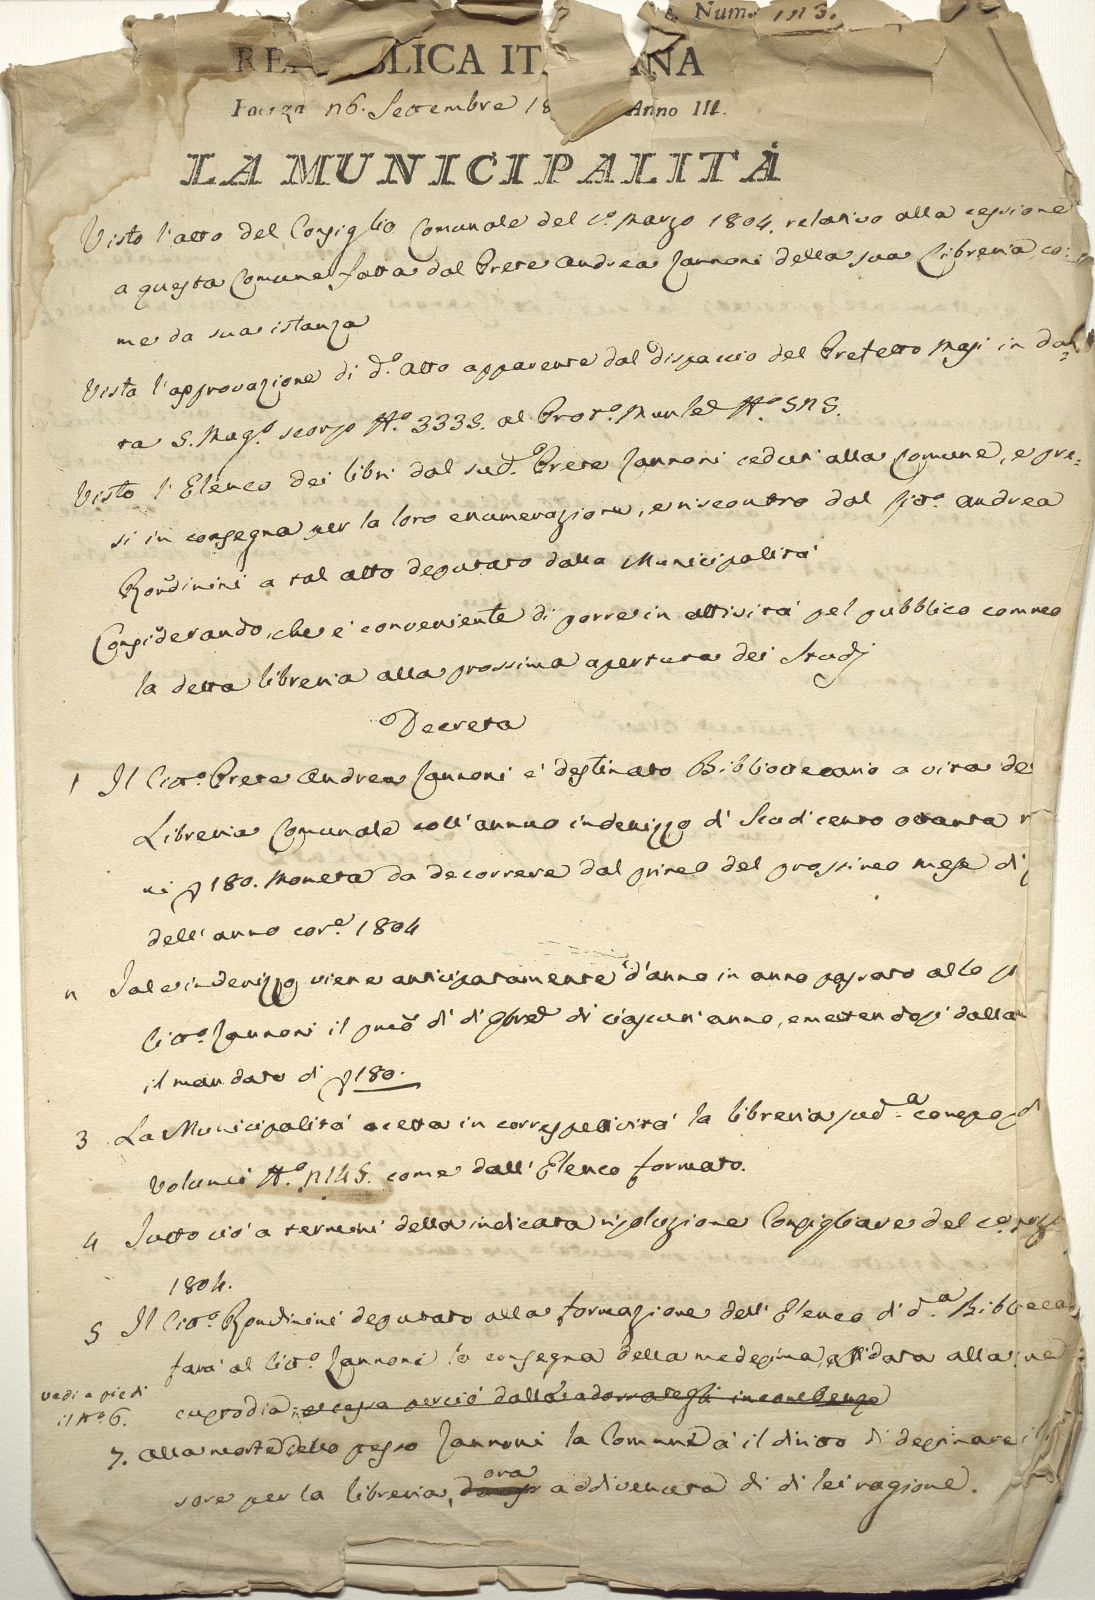 Num. 113.
REPUBBLICA ITALIANA
Faenza 26. Settembre 18 Anno III.
LA MUNICIPALITÀ
Visto l'atto del Consiglio Comunale del p.o Marzo 1804. relativo alla cessione
a questa Comune fatta dal Prete Andrea Zannoni della sua Libreria, co:
me da sua istanza
Vista l'approvazione di d.o atto apparente dal dispaccio del Prefetto Masi in da=
ta 5. Mag.o scorso N.o 3335. al Prot.o Mun.le N.o 525.
Visto l'Elenco dei libri dal sud.o Prete Zannoni ceduti alla Comune, e pre=
si in consegna per la loro enumerazione, e riscontro dal Citt.o Andrea
Rondinini a tal atto deputato dalla Municipalità
Considerando, che è conveniente di porre in attività pel pubblico comodo
la detta libreria alla prossima apertura dei Studj
Decreta
1 Il Citt.o Prete Andrea Zannoni è destinato Bibliotecario a vita de
Libreria Comunale coll'annuo indenizzo di Scudi cento ottanta
180. Moneta da decorrere dal primo del prossimo mese di
dell'anno cor.e 1804
2 Tale indenizzo viene anticipatamente d'anno in anno pagato allo
Citt.o Zannoni il primo dì di 8bre di ciascun'anno, emettendosi dalla
il mandato di 180.
3 La Municipalità accetta in correspettività la libreria sud.a
Volumi N.o 2145. come dall'Elenco formato.
4 Tutto ciò a termini della indicata risoluzione Consigliare del p.o
1804.
5 Il Citt.o Rondinini deputato alla formazione dell'Elenco di d.a Biblioteca
farà al Citt.o Zannoni la consegna della medesima, affidata alla sua
vedi a piedi
il N.o 6.
custodia, e cessa perciò dalla addossategli incombenze
7. Alla morte dello stesso Zannoni la Comune à il diritto di destinare
sore per la libreria, ora addivenuta di di lei ragione.